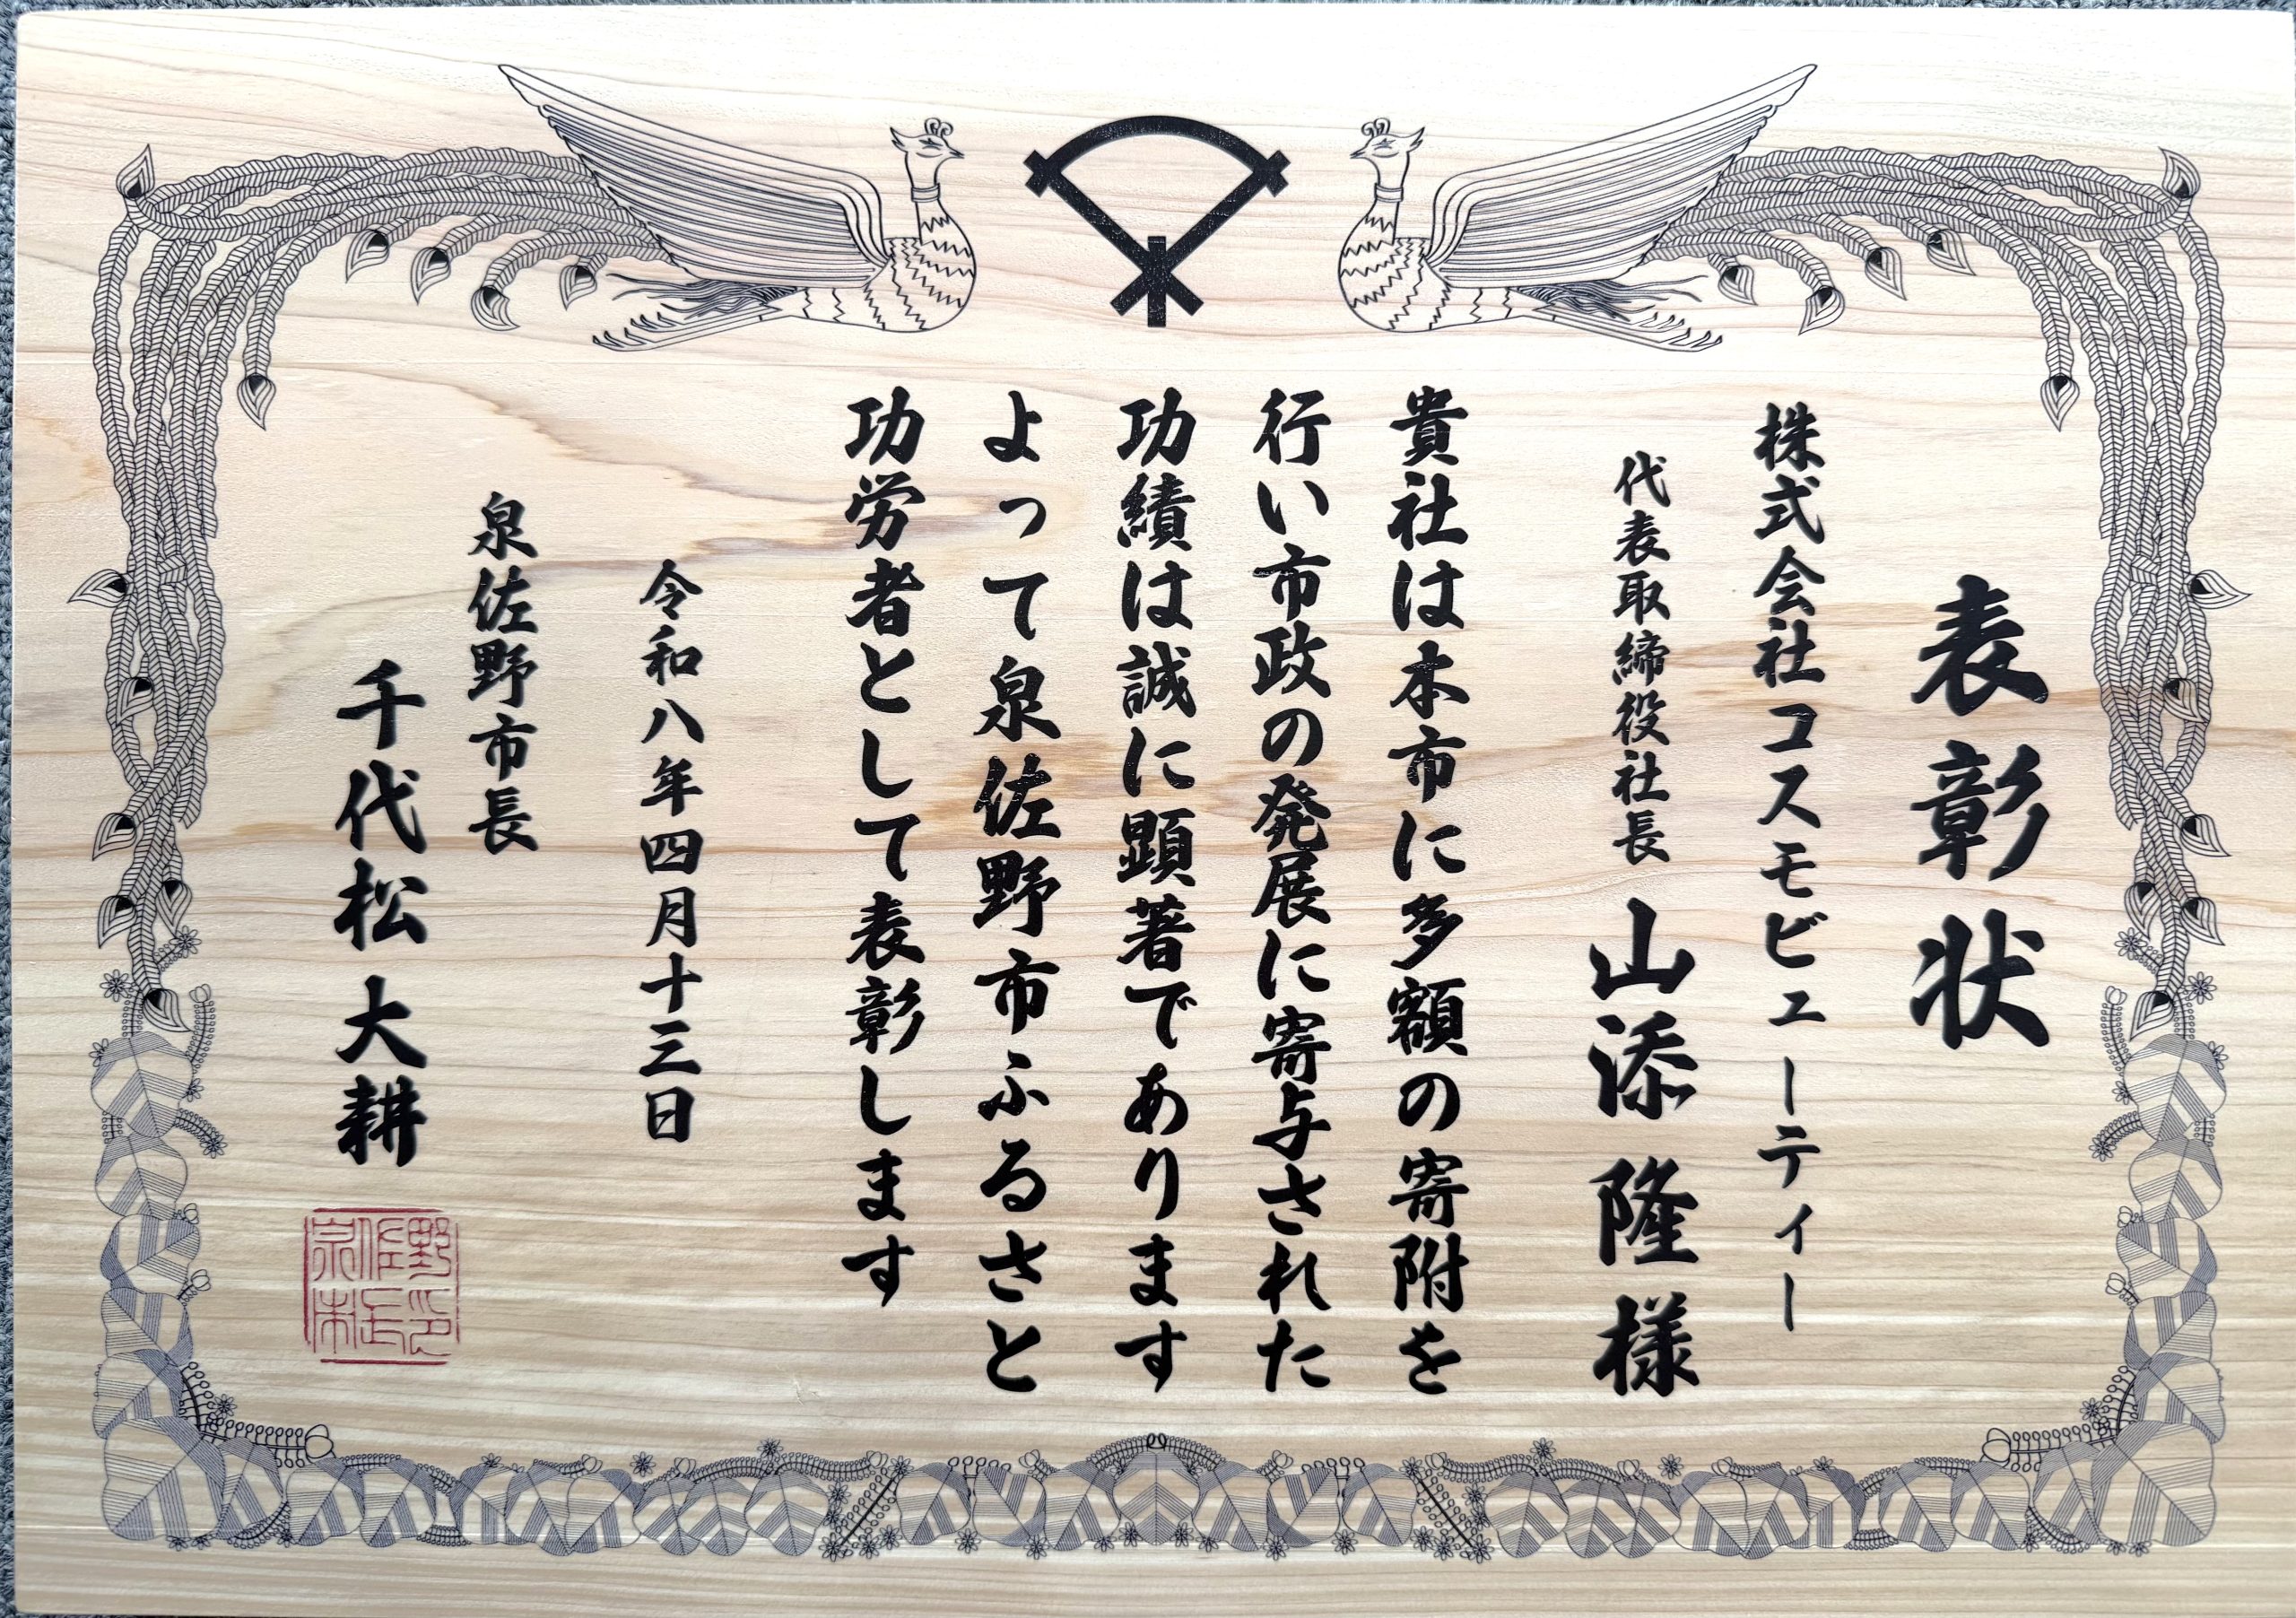 表彰状
株式会社コスモビューティー
代表取締役社長 山添 隆 様
貴社は本市に多額の寄附を
行い市政の発展に寄与された
功績は誠に顕著であります
よって泉佐野市ふるさと
功労者として表彰します
令和八年四月十三日
泉佐野市長
千代松 大耕